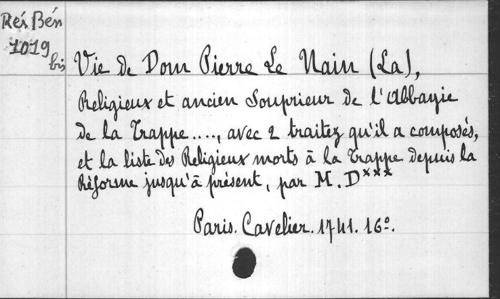 Rés Bén
1019
bis
Vie de Dom Pierre Le Nain (La),
Religieux et ancien Souprieur de l'Abbayie
de la Trappe...., avec 2 traitez qu'il a composés,
et la liste des Religieux morts à la Trappe depuis la
Réforme jusqu'à présent, par M. D***
Paris. Cavelier. 1741. 16º.